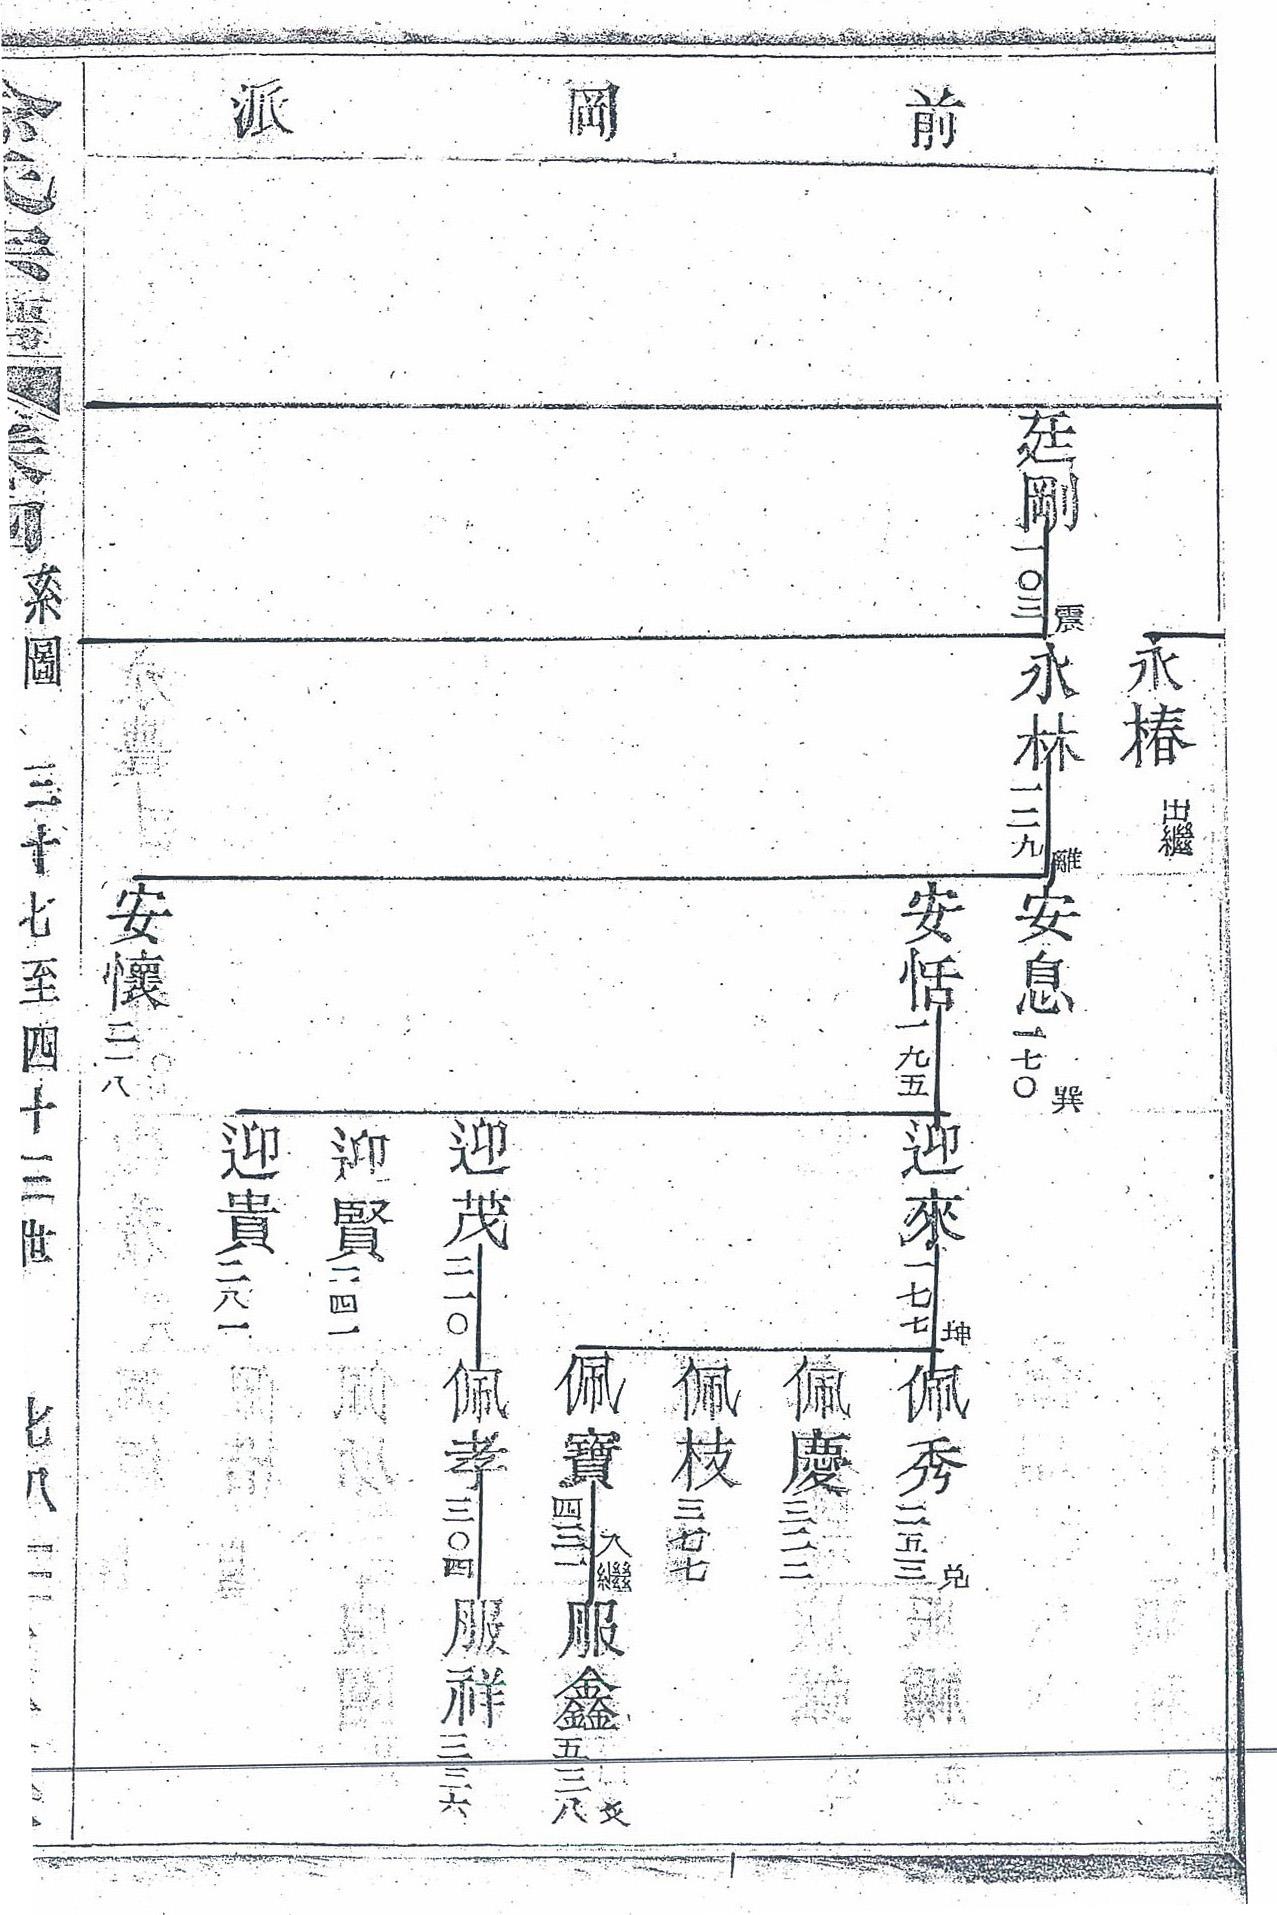 前岡派
廷剛
一〇三
震
永椿
出繼
永林
一二九
離
安息
一七〇
巽
安恬
一九五
安懷
二一八
迎來
一七七
坤
迎茂
二一〇
迎賢
二四一
迎貴
二八一
佩秀
二五三
兌
佩慶
三二二
佩枝
三七七
佩寶
四三一
入繼
佩孝
三〇四
服鑫
五三八
服祥
三三六
系圖
三十七至四十三世
七八三